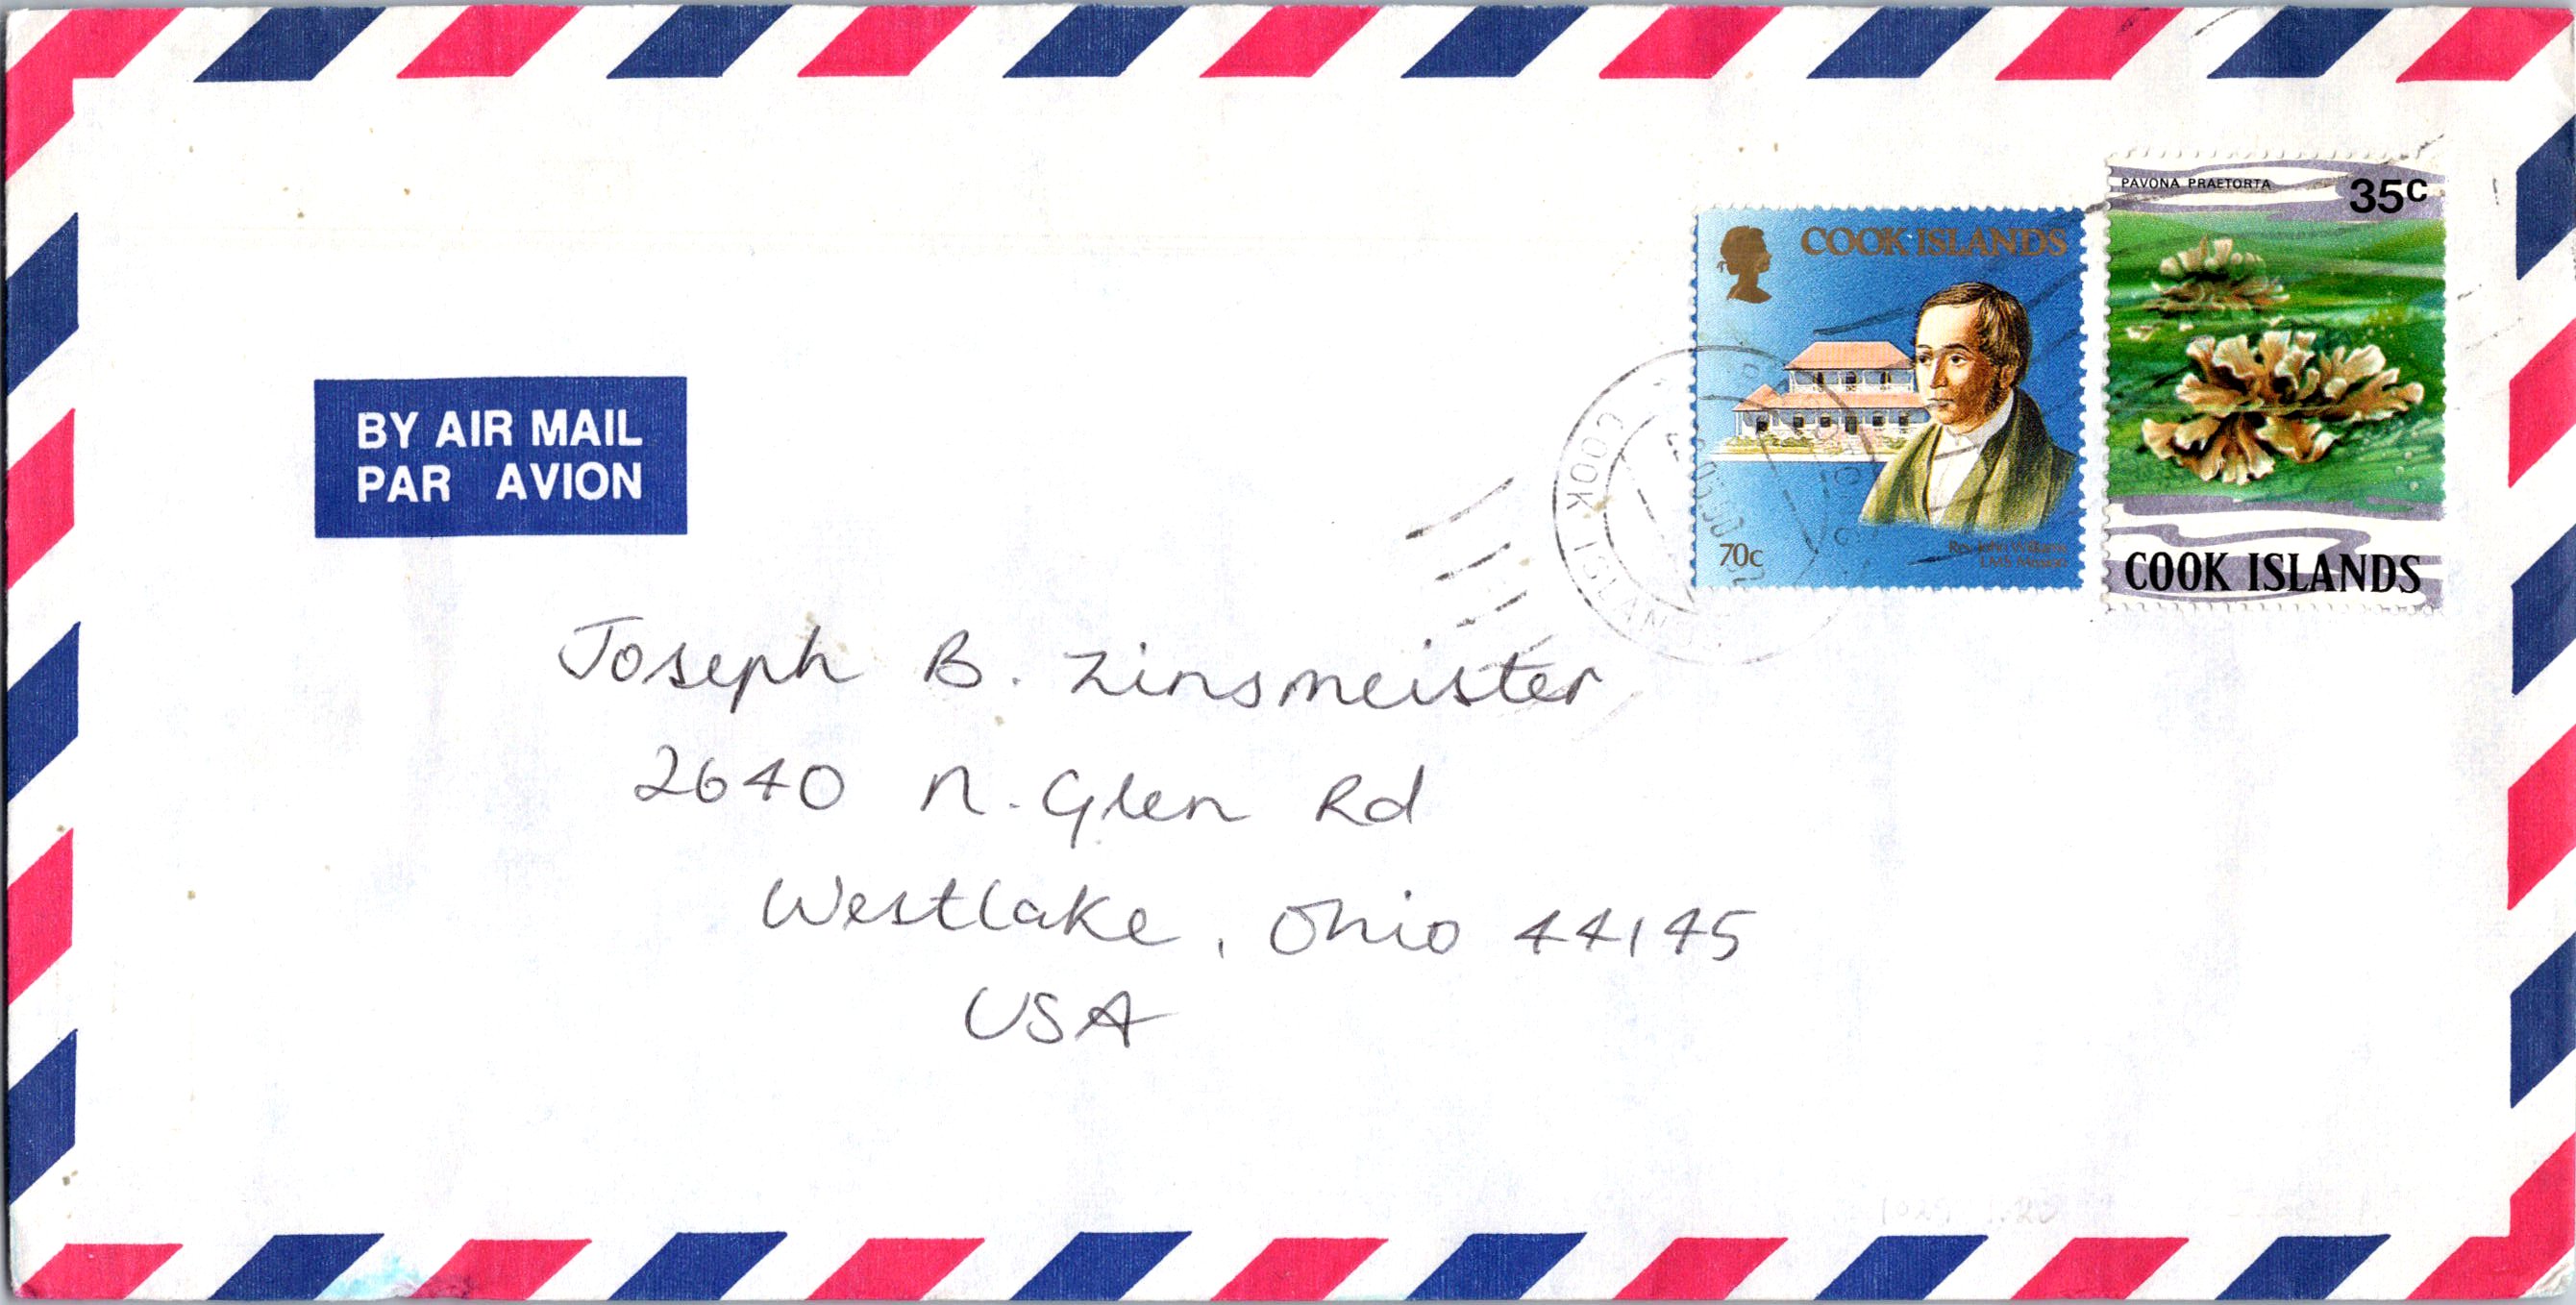 PAVONA PRAETORTA
35c
COOK ISLANDS
70c
Rev. John Williams
LMS Mission
COOK ISLANDS
COOK ISLAN
BY AIR MAIL
PAR AVION
Joseph B. Zinsmeister
2640 N. Glen Rd
Westlake, Ohio 44145
USA